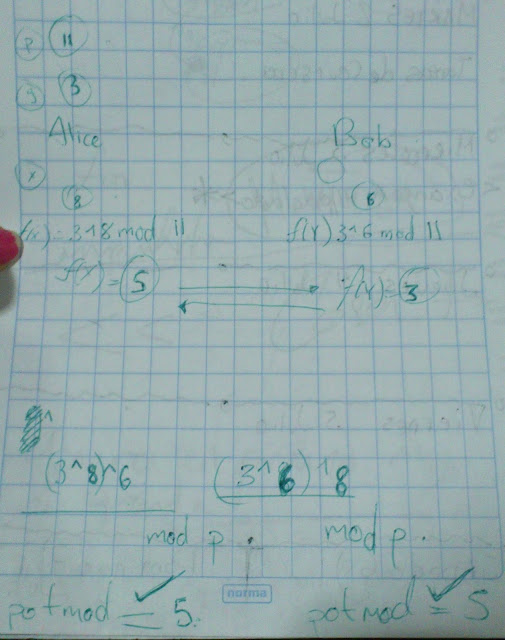 p 11
g 3
Alice Bob
x
8 6
f(x) = 3^8 mod 11 f(x) 3^6 mod 11
f(x) = 5 f(x) = 3
(3^8)^6 (3^6)^8
mod p. mod p.
norma
potmod = 5. potmod = 5